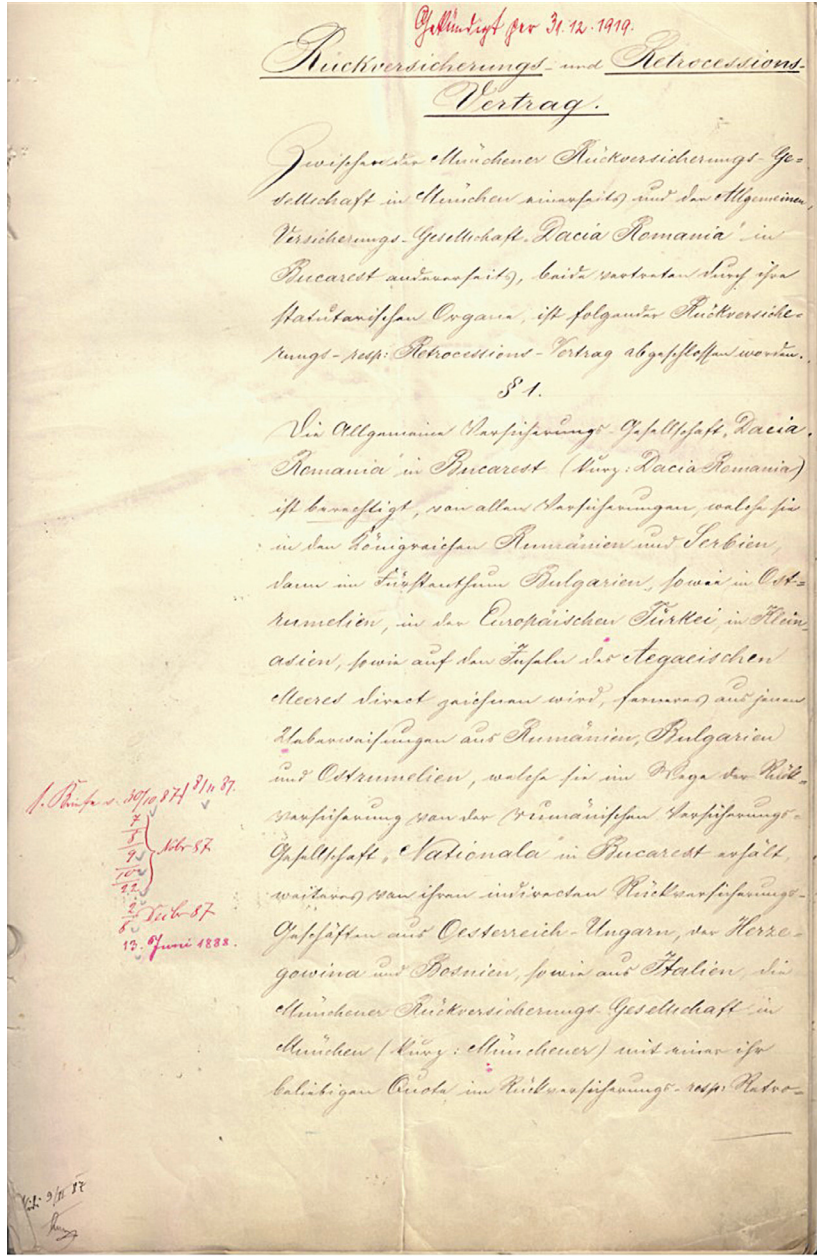 Gekündigt per 31.12.1919.
Rückversicherungs- und Retrocessions-
Vertrag.
Zwischen der Münchener Rückversicherungs-Ge=
sellschaft in München einerseits und der Allgemeinen
Versicherungs-Gesellschaft „Dacia Romania" in
Bucarest andererseits, beide vertreten durch ihre
statutarischen Organe, ist folgender Rückversiche=
rungs- resp: Retrocessions-Vertrag abgeschlossen worden.
§ 1.
Die Allgemeine Versicherungs-Gesellschaft „Dacia
Romania" in Bucarest (kurz: Dacia Romania)
ist berechtigt, von allen Versicherungen, welche sie
in den Königreichen Rumänien und Serbien,
dann im Fürstenthum Bulgarien, sowie in Ost=
rumelien, in der Europäischen Türkei, in Klein=
asien, sowie auf den Inseln des Aegaeischen
Meeres direct zeichnen wird, ferneres aus jenen
Ueberweisungen aus Rumänien, Bulgarien
und Ostrumelien, welche sie im Wege der Rück=
versicherung von der rumänischen Versicherungs=
Gesellschaft „Nationala" in Bucarest erhält,
weiteres von ihren indirecten Rückversicherungs=
Geschäften aus Oesterreich-Ungarn, der Herze=
gowina und Bosnien, sowie aus Italien, die
Münchener Rückversicherungs-Gesellschaft in
München (kurz: Münchener) mit einer ihr
beliebigen Quote im Rückversicherungs- resp: Retro=
s. Briefe v. 30/10 87 / 8/11 87.
7
8
9
10
22
Nobr 87
2
8 Decbr 87
13. Juni 1888.
9/11 87